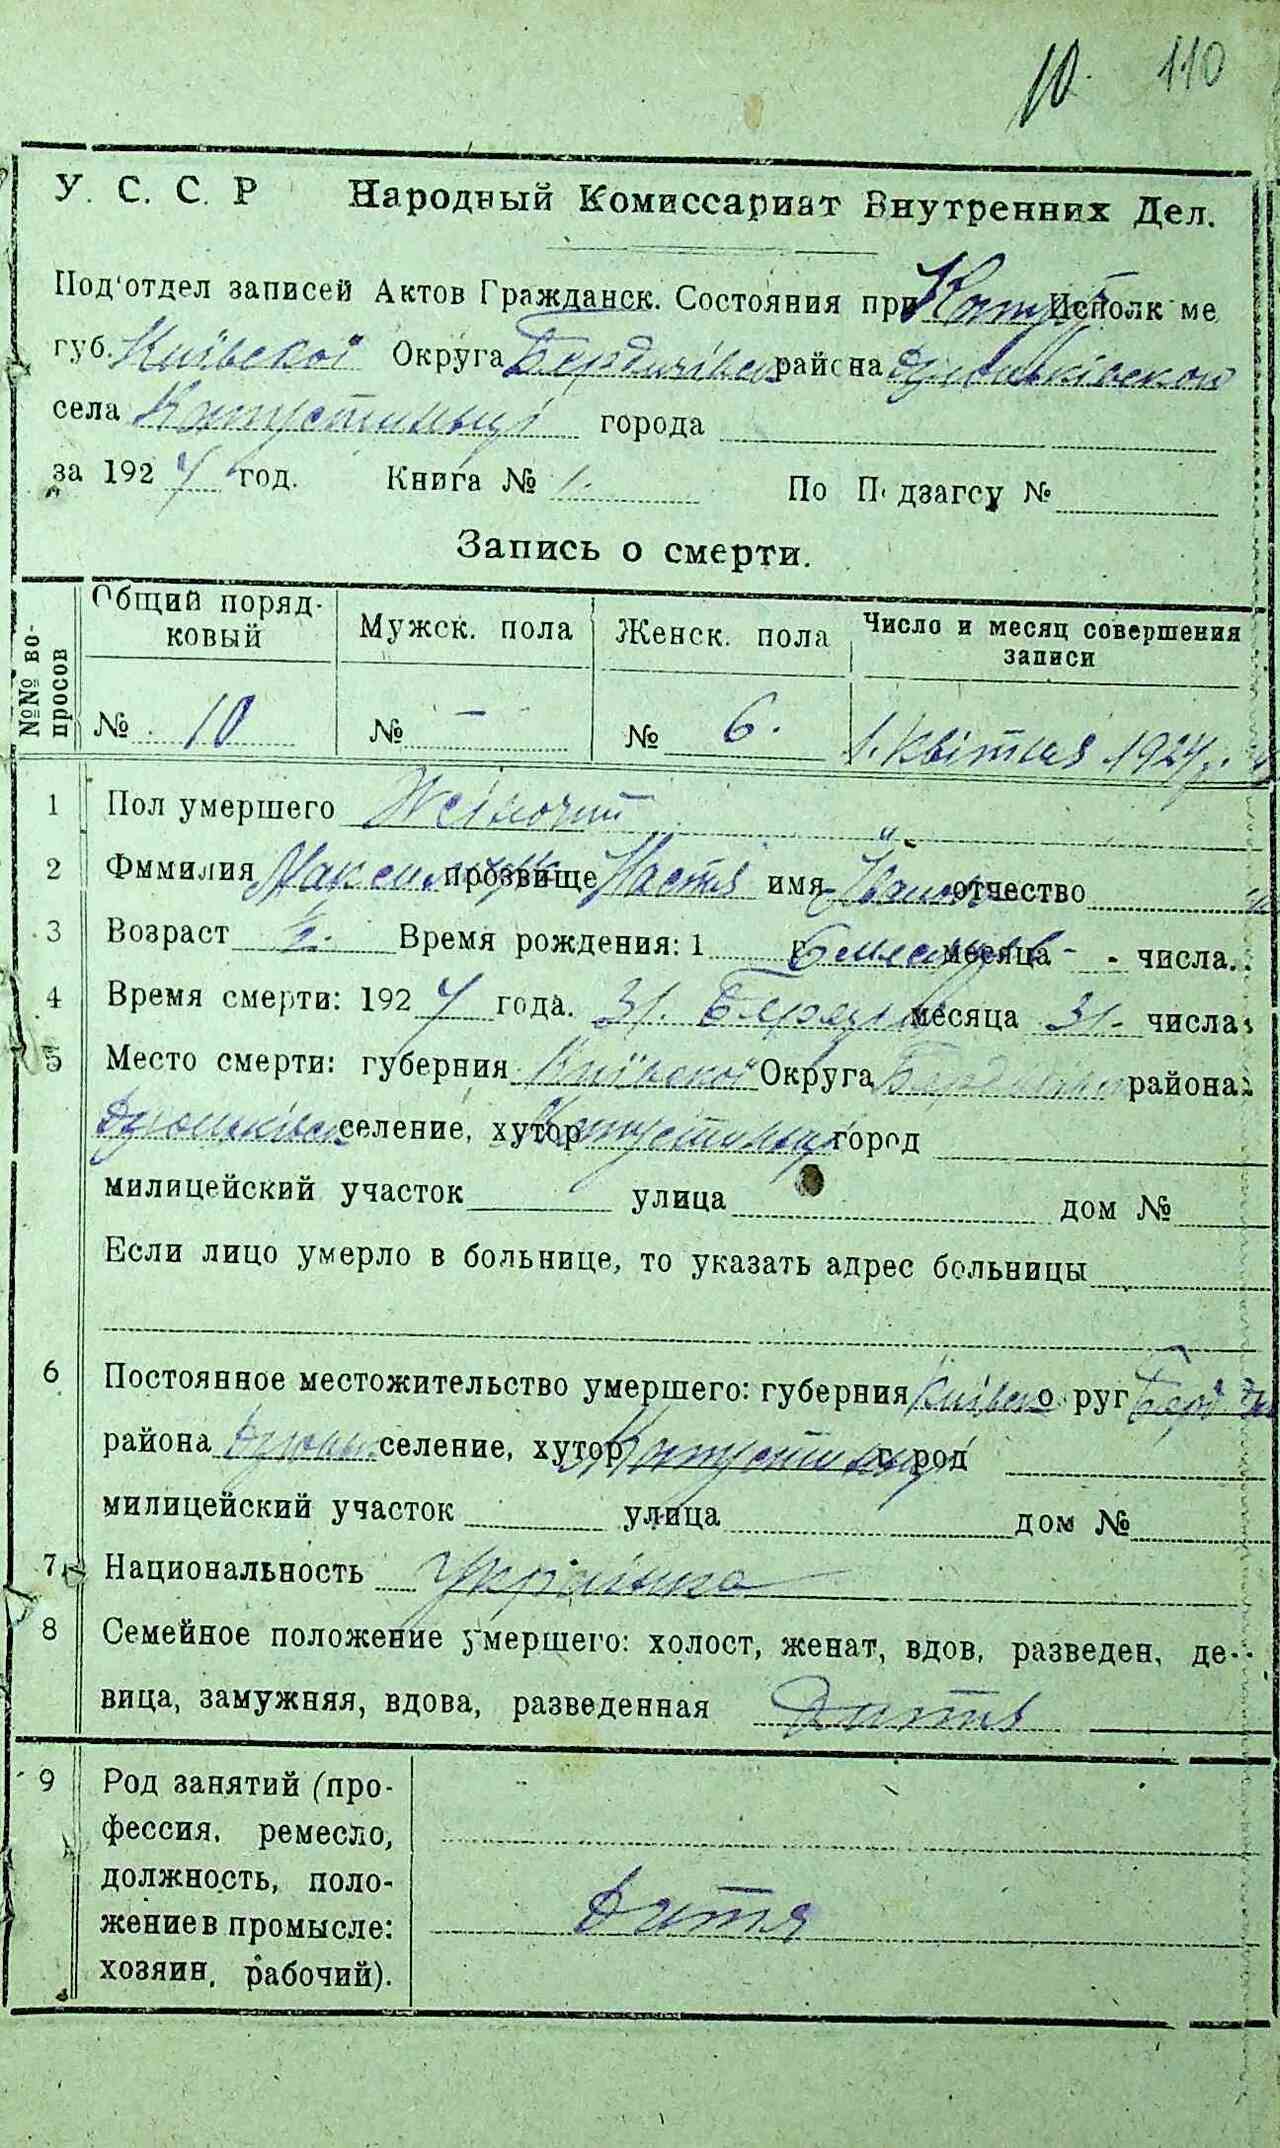 10. 110
У. С. С. Р Народный Комиссариат Внутренних Дел.
Под'отдел записей Актов Гражданск. Состояния при Исполк ме
губ. Київської Округа Бердичівськ района
села Капустинці города
за 1924 год. Книга № 1. По П дзагсу №
Запись о смерти.
№№ во-
просов
Общий поряд-
ковый
Мужск. пола
Женск. пола
Число и месяц совершения
записи
№ 10
№ —
№ 6.
1. Квітня 1924 р.
1 Пол умершего Жіночий
2 Фммилия прозвище Настя имя отчество
3 Возраст ½. Время рождения: 1 г. 6 месяца - - числа.
4 Время смерти: 1924 года. 31. Березня месяца 31. числа
5 Место смерти: губерния Київської Округа района
селение, хутор Капустинці город
милицейский участок улица дом №
Если лицо умерло в больнице, то указать адрес больницы
6 Постоянное местожительство умершего: губерния Київськ о руг
района селение, хутор Капустинці г род
милицейский участок улица дом №
7 Национальность Українка
8 Семейное положение умершего: холост, женат, вдов, разведен, де-
вица, замужняя, вдова, разведенная Дитя
9 Род занятий (про-
фессия, ремесло,
должность, поло-
жение в промысле:
хозяин, рабочий).
Дитя